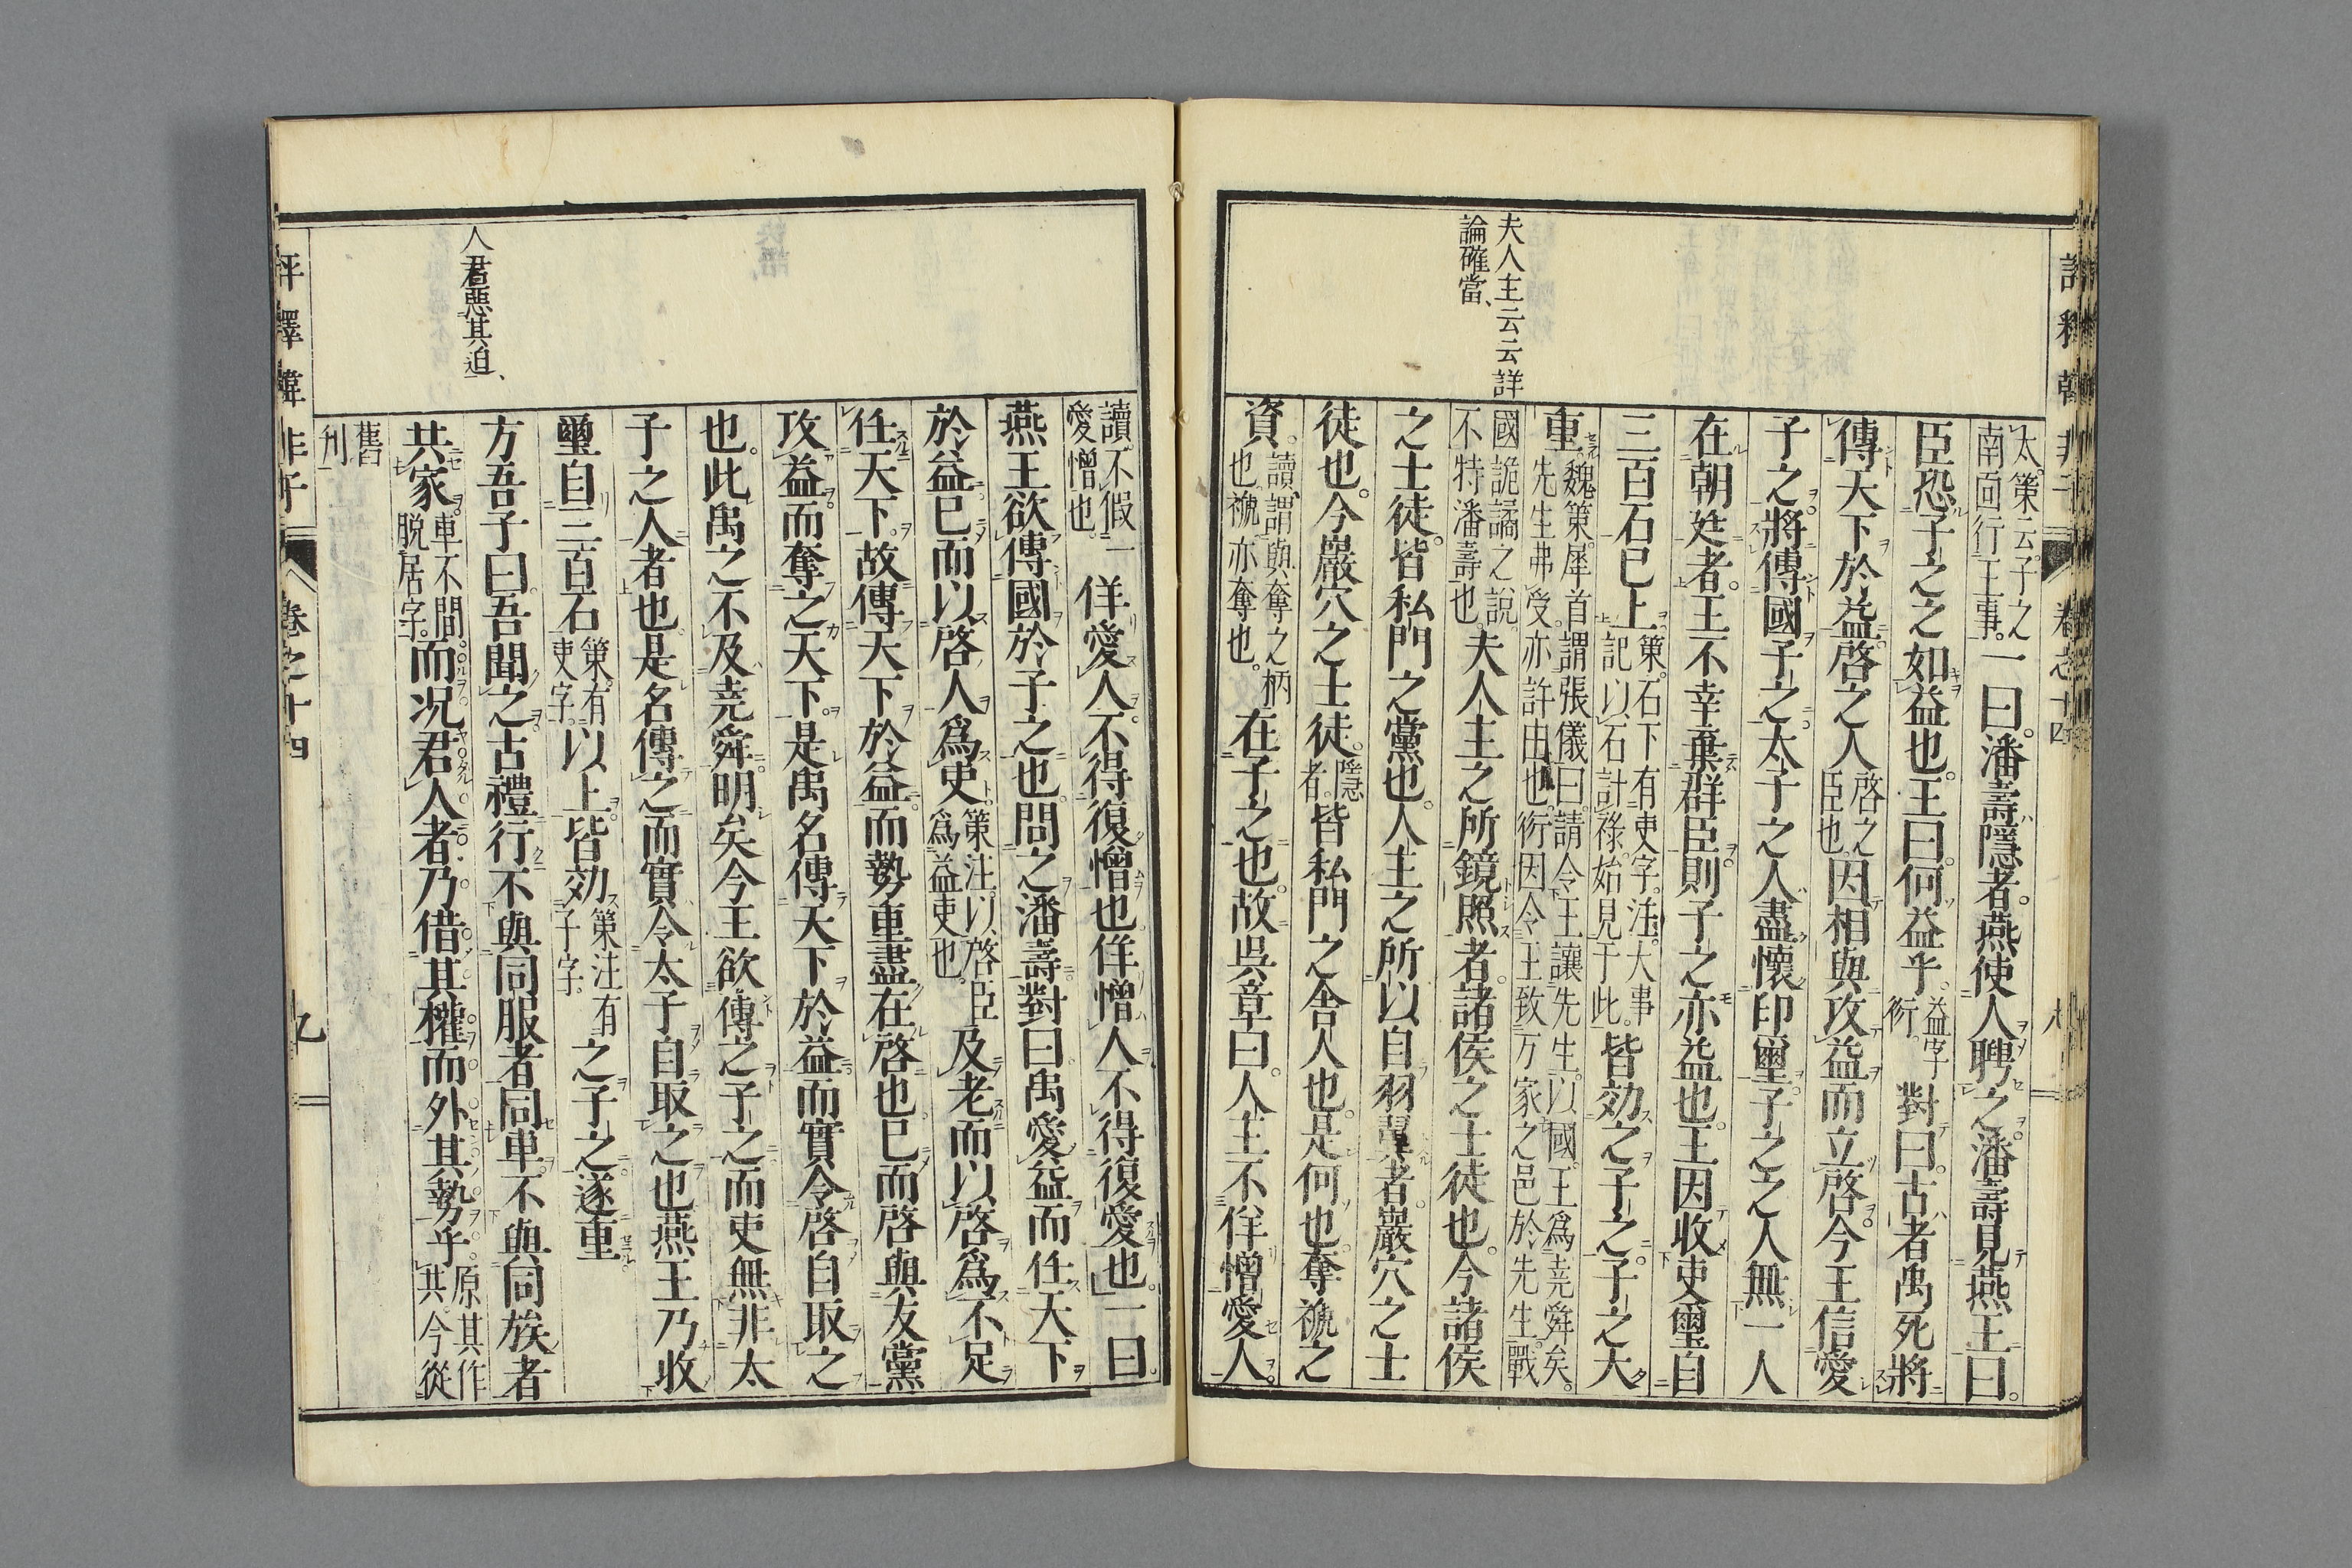 夫人主云云詳
論確當、
太策云子之南面行王事。一曰。潘壽隱者。燕使人聘之潘壽見燕王曰。
臣恐子之之如益也。王曰。何益乎。益字衍。對曰。古者禹死將
傳天下於益啓之人啓之臣也。因相與攻益而立啓。今王信愛
子之將傳國子之太子之人盡懷印璽子之之人無一人
在朝廷者。王不幸棄群臣則子之亦益也。王因收吏璽自
三百石已上策。石下有吏字。注。大事記以石計祿始見于此。皆効之子之。子之大
重。魏策。犀首謂張儀曰。請令王讓先生以國。王爲堯舜矣。先生弗受。亦許由也。衍因令王致万家之邑於先生。戰
國詭譎之說。不特潘壽也。夫人主之所鏡照者。諸侯之士徒也。今諸侯
之士徒。皆私門之黨也。人主之所以自羽翼者。巖穴之士
徒也。今巖穴之士徒。隱者。皆私門之舍人也。是何也。奪褫之
資。讀謂與奪之柄也。褫亦奪也。在子之也。故吳章曰。人主不佯憎愛人。
人君惡其迫、
讀不假愛憎也。佯愛人。不得復憎也佯憎人不得復愛也。一曰。
燕王欲傳國於子之也。問之潘壽對曰禹愛益而任天下
於益已而以啓人爲吏。策注。以啓臣爲益吏也。及老而以啓爲不足
任天下。故傳天下於益而勢重盡在啓也已而啓與友黨
攻益而奪之天下。是禹名傳天下於益而實令啓自取之
也。此禹之不及堯舜明矣今王欲傳之子之而吏無非太
子之人者也是名傳之而實令太子自取之也燕王乃收
璽自三百石策。有吏字。以上皆効策注有子字。之子之遂重
方吾子曰。吾聞之。古禮行不與同服者同車不與同族者
共家。車不問。脱居字。而况君人者乃借其權而外其勢乎。原其作共。今從
舊刊
評釋韓非子 卷之十四 九